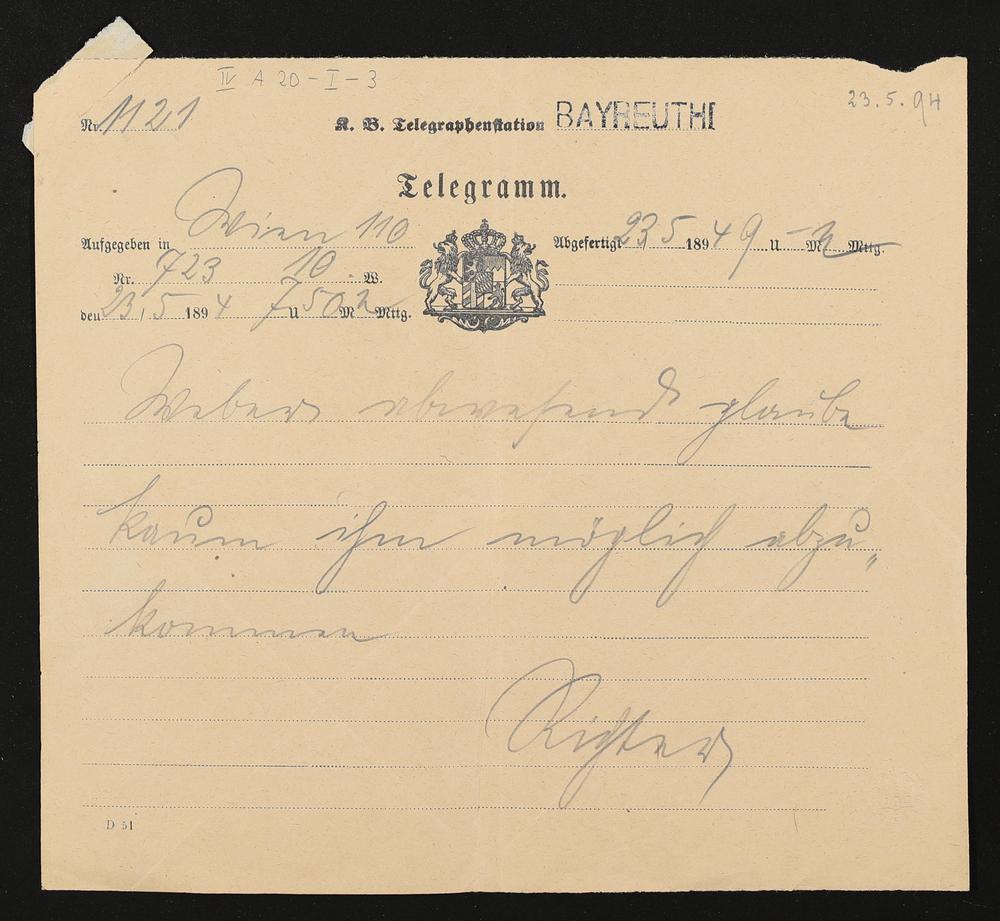 IV A 20-I-3
23.5.94
Nr. 1121 K. B. Telegraphenstation BAYREUTH I
Telegramm.
Aufgegeben in Wien 110 Abgefertigt 23 5 1894 9 U - M Mttg.
Nr. 723 10 W.
den 23/5 1894 7 U 50 M Mttg.
Weber abwesend glaube
kaum ihm möglich abzu„
kommen
Richter
D 51